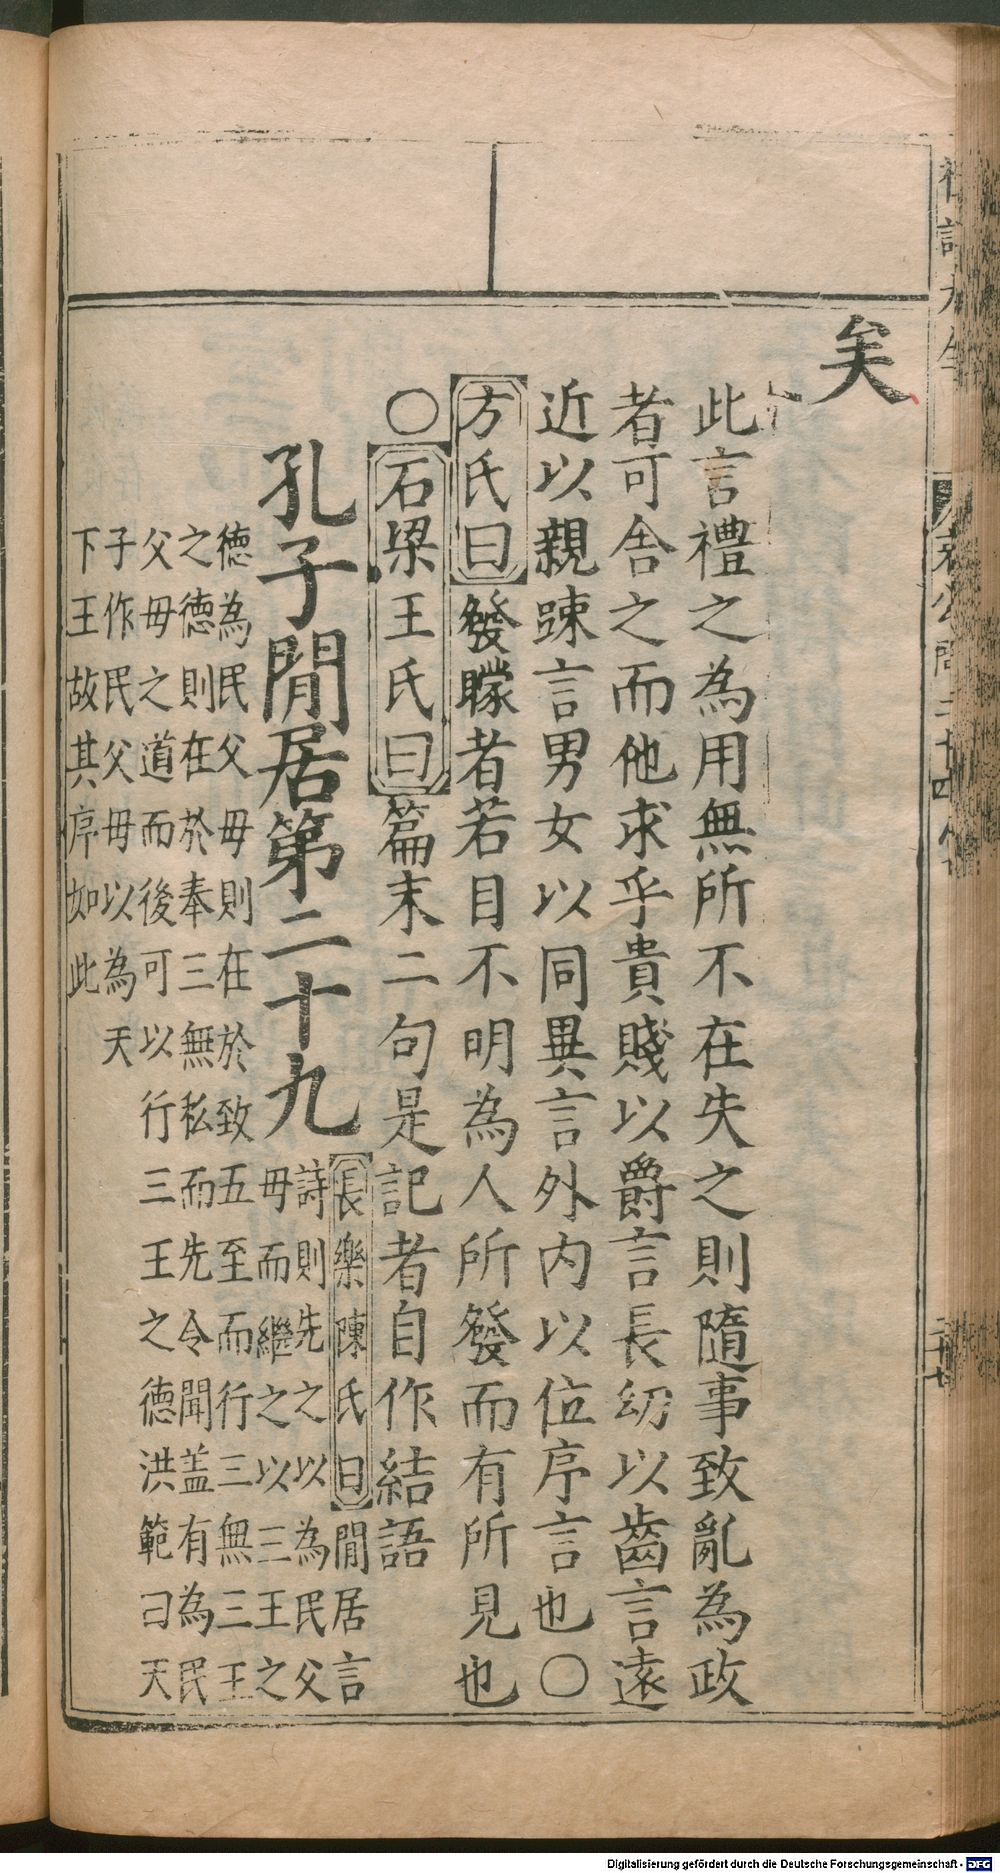 矣
此言禮之為用無所不在失之則隨事致亂為政
者可舍之而他求乎貴賤以爵言長幼以齒言遠
近以親踈言男女以同異言外内以位序言也○
方氏曰發矇者若目不明為人所發而有所見也
○石梁王氏曰篇末二句是記者自作結語
孔子閒居第二十九
長樂陳氏曰閒居言
詩則先之以為民父
母而繼之以三王之
德為民父母則在於致五至而行三無三王
之德則在於奉三無私而先令聞盖有為民
父母之道而後可以行三王之德洪範曰天
子作民父母以為天
下王故其序如此
Digitalisierung gefördert durch die Deutsche Forschungsgemeinschaft - DFG